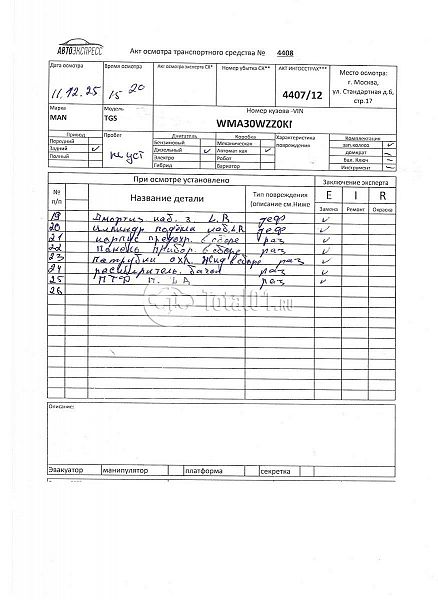 АВТОЭКСПРЕСС
Акт осмотра транспортного средства № 4408
Дата осмотра Время осмотра Акт осмотра эксперта СК* Номер убытка СК** АКТ ИНГОССТРАХ***
11.12.25 15 20 4407/12
Место осмотра:
г. Москва,
ул. Стандартная д.
6, стр.17
Марка Модель Номер кузова -VIN
MAN TGS WMA30WZZ0K
Привод Пробег Двигатель Коробка Характеристика повреждения Комплектация
Передний Бензиновый Механическая зап.колесо ✓
Задний ✓ Дизельный ✓ Автомат кая ✓ домкрат
Полный Электро Робот Бал. Ключ
Гибрид Вариатор Инструмент
При осмотре установлено Заключение эксперта
№ п/п Название детали Тип повреждения (описание см.Ниже E I R
Замена Ремонт Окраска
19 Амортиз каб. з. L.R деф ✓
20 Цилиндр подъема каб. LR деф ✓
21 корпус предохр. в сборе раз ✓
22 Панель прибор. в сборе раз ✓
23 Патрубки охл. жид в сборе раз ✓
24 расширитель. бачок раз ✓
25 ПТФ П. LA раз ✓
26
Total01.RU
Описание:
Эвакуатор манипулятор платформа секретка